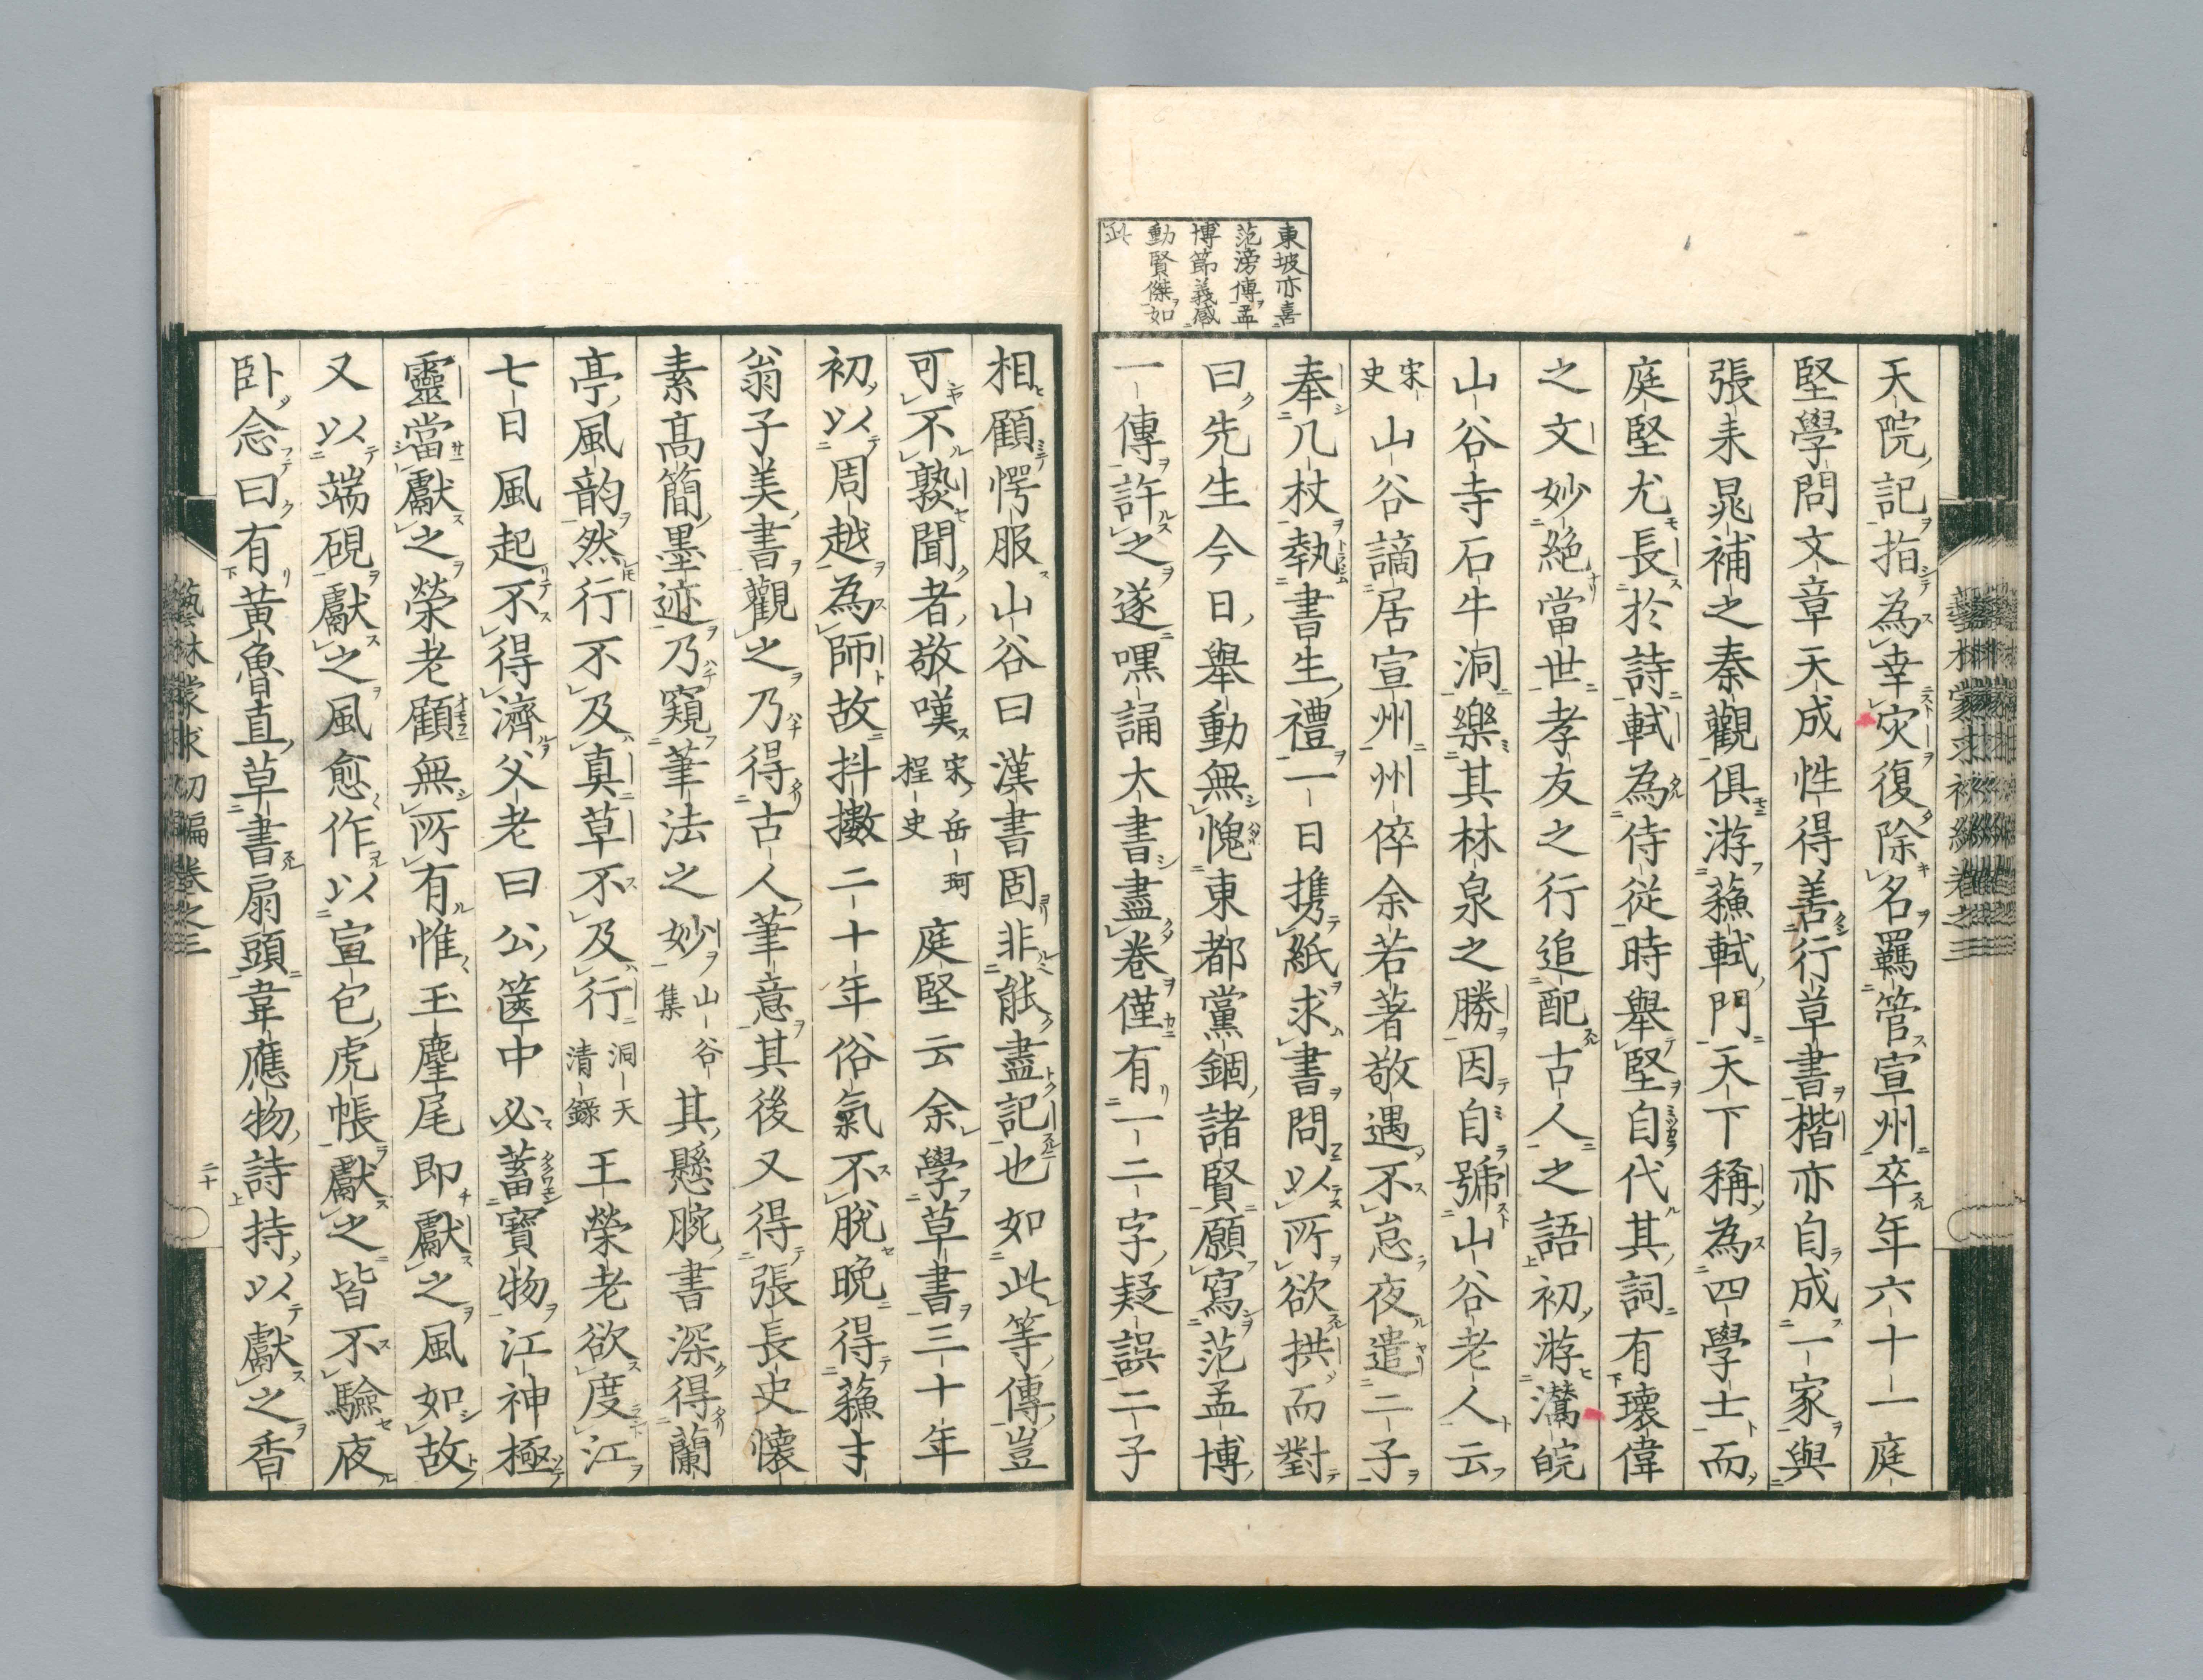 東坡亦喜
范滂傳孟
博節義感
動賢傑如
此
天院記指為幸灾復除名羈管宣州卒年六十一庭
堅學問文章天成性得善行草書楷亦自成一家與
張耒晁補之秦觀俱游蘓軾門天下稱為四學士而
庭堅尤長於詩軾為侍從時舉堅自代其詞有瓌偉
之文妙絶當世孝友之行追配古人之語初游灊皖
山谷寺石牛洞樂其林泉之勝因自號山谷老人云
宋史山谷謫居宣州州倅余若著敬遇不怠夜遣二子
奉几杖執書生禮一日携紙求書問以所欲拱而對
曰先生今日舉動無愧東都黨錮諸賢願寫范孟博
一傳許之遂嘿誦大書盡卷僅有一二字疑誤二子
相顧愕服山谷曰漢書固非能盡記也如此等傳豈
可不熟聞者敬嘆宋岳珂桯史庭堅云余學草書三十年
初以周越為師故抖擻二十年俗氣不脫晩得蘓才
翁子美書觀之乃得古人筆意其後又得張長史懐
素髙簡墨迹乃窺筆法之妙山谷集其懸腕書深得蘭
亭風韵然行不及真草不及行洞天清錄王榮老欲度江
七日風起不得濟父老曰公篋中必蓄寳物江神極
靈當獻之榮老顧無所有惟玉麈尾即獻之風如故
又以端硯獻之風愈作以宣包虎帳獻之皆不驗夜
卧念曰有黄魯直草書扇頭韋應物詩持以獻之香
藝林蒙求初編卷之三
二十